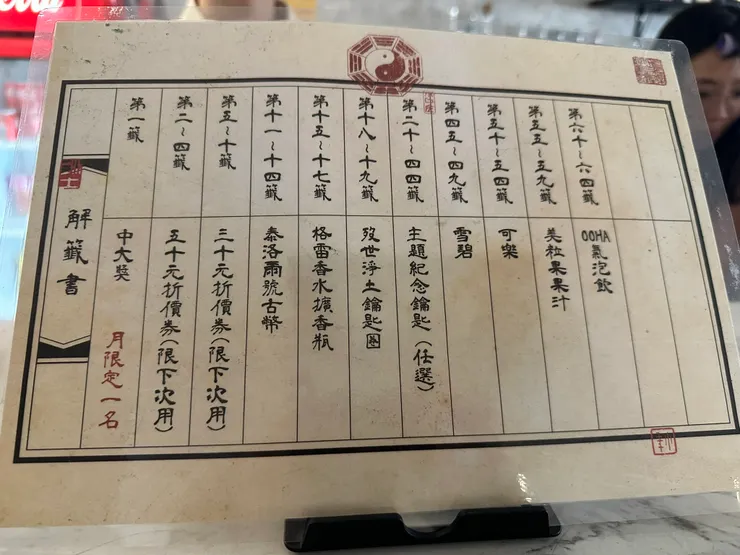 解籤書
第一籤
中大獎
月限定一名
第二~四籤
五十元折價券(限下次用)
第五~十籤
三十元折價券(限下次用)
第十一~十四籤
泰洛爾號古幣
第十五~十七籤
格雷香水擴香瓶
第十八~十九籤
歿世淨土鑰匙圈
第二十~四四籤
主題紀念鑰匙(任選)
第四五~四九籤
雪碧
第五十~五四籤
可樂
第五五~五九籤
美粒果果汁
第六十~六四籤
OOHA氣泡飲